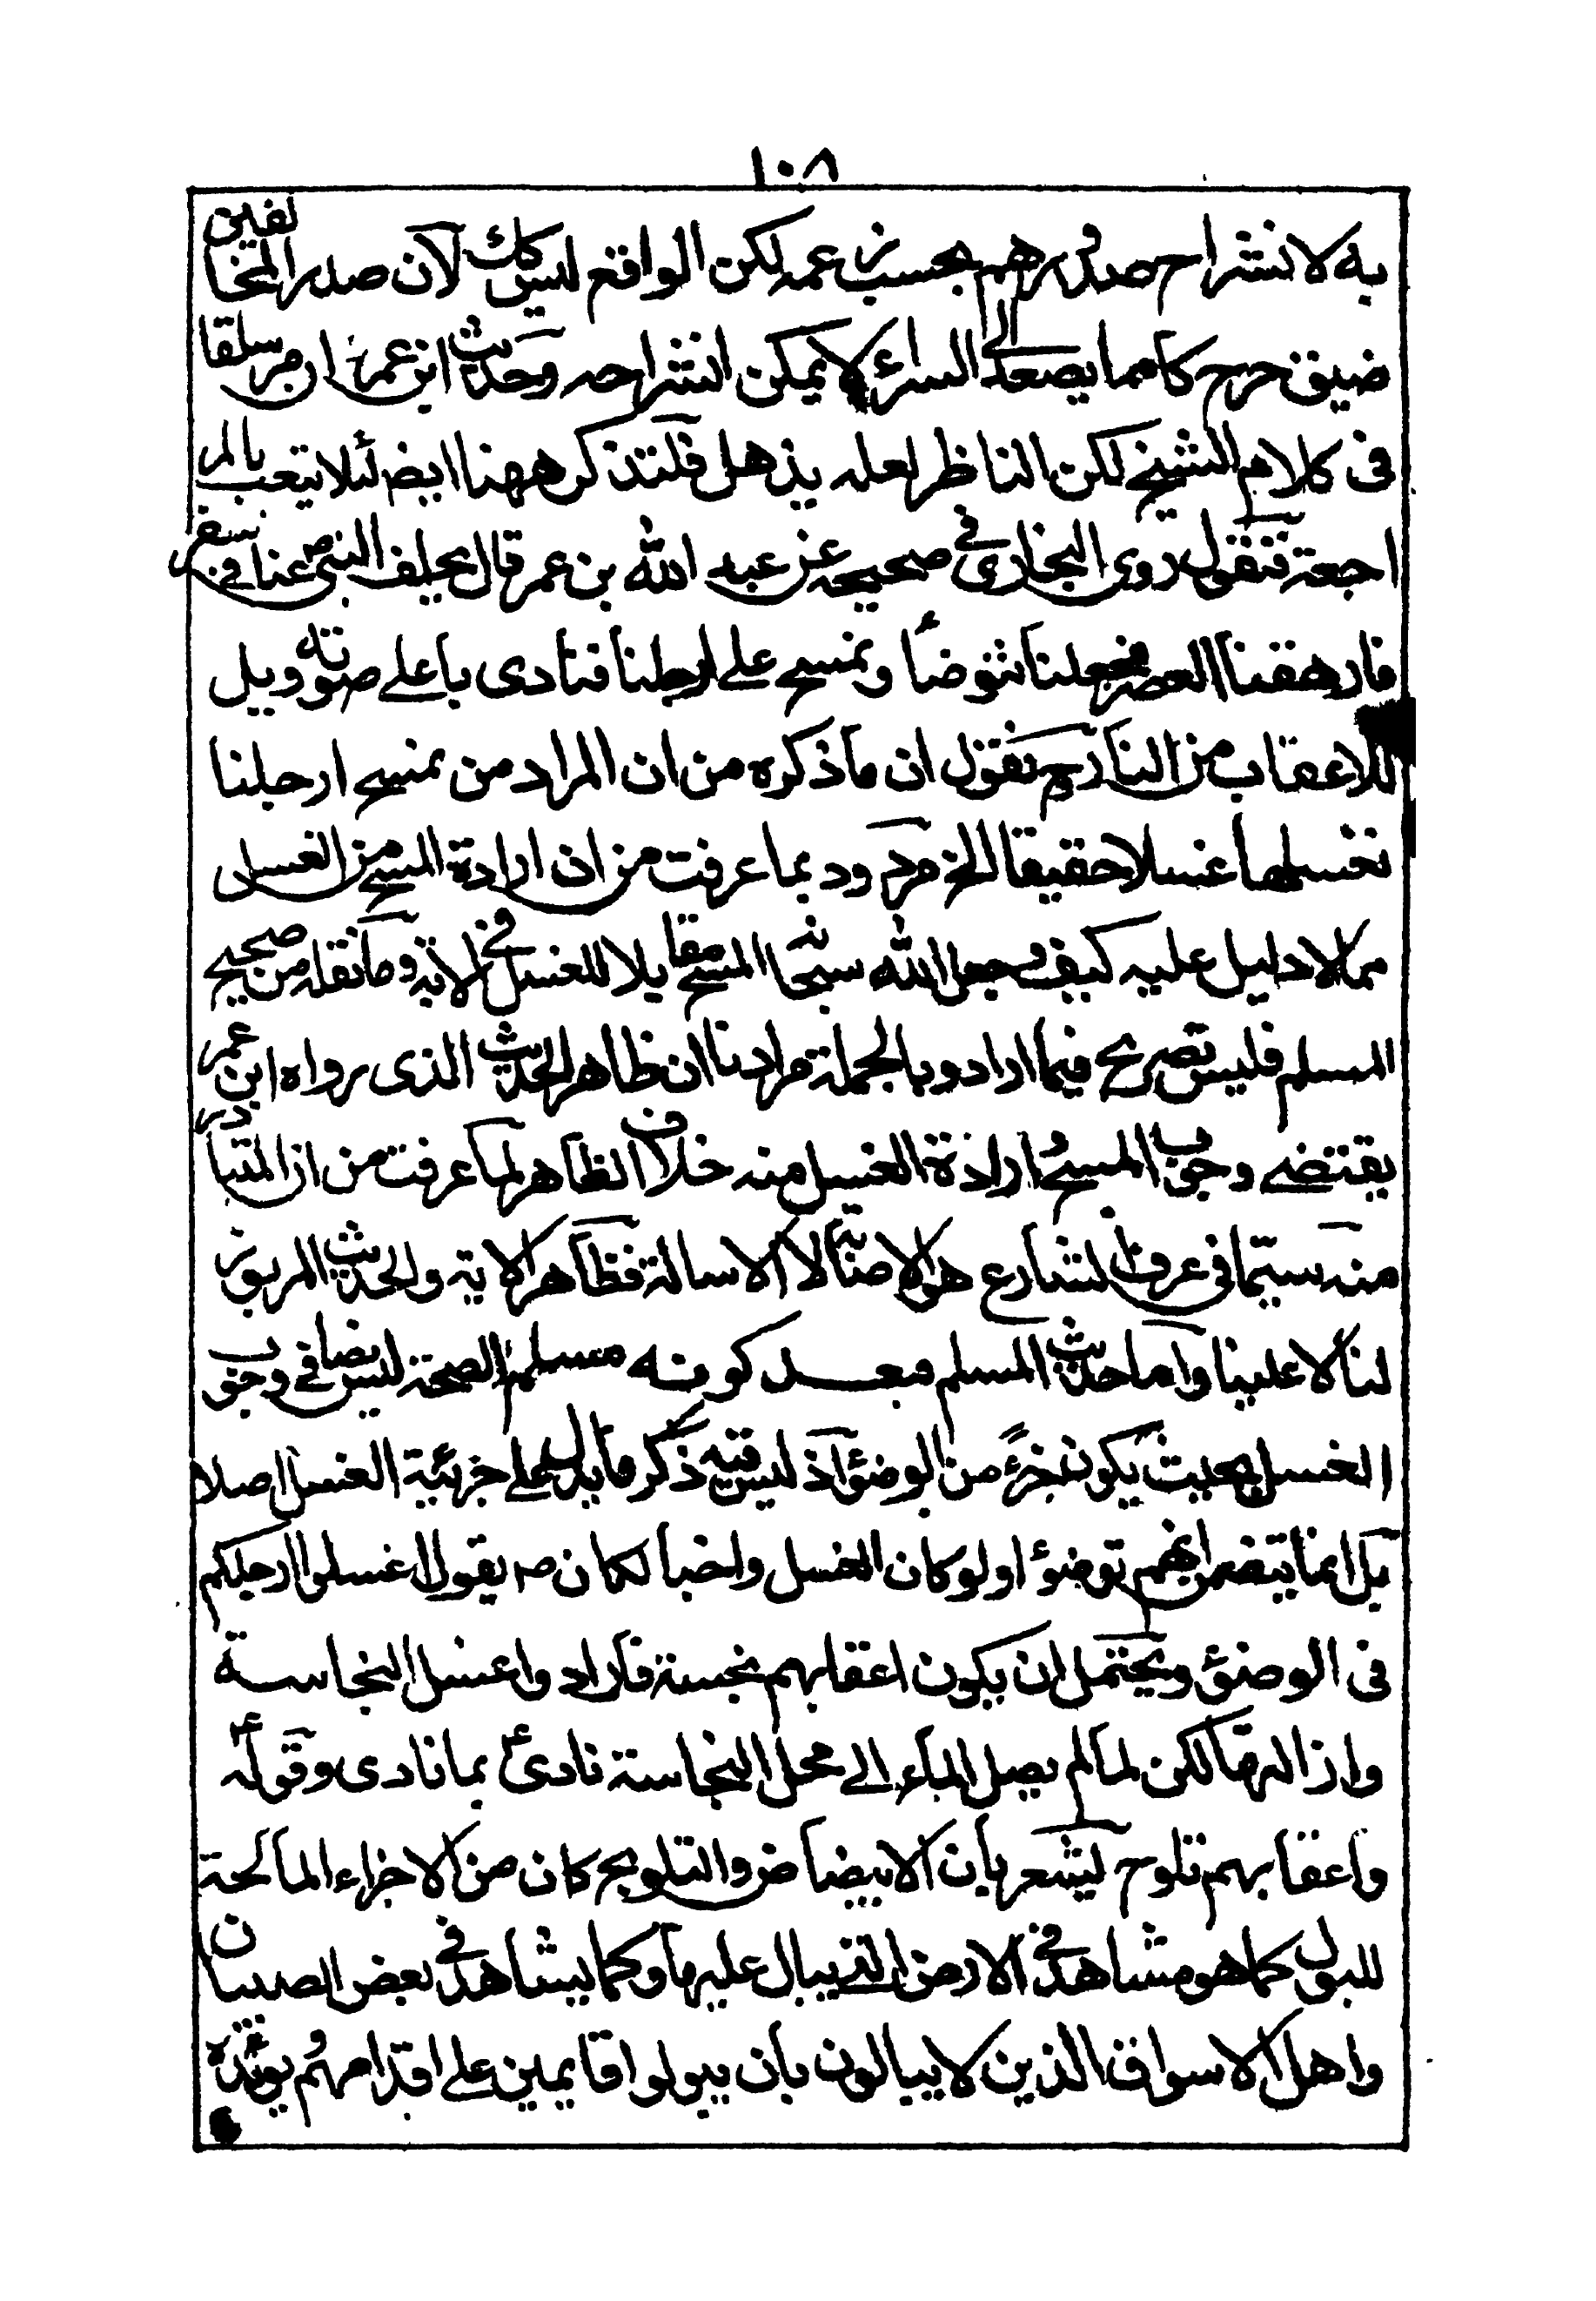 ١٠٨
به لانشراح صدورهم بحسب زعمه لكن الواقع ليس كك لان صدر المخالفين
ضيق حرج كانما يصعد الى السماء لا يمكن انشراحه وحديث ابن عمر وان مر سلقا
فى كلام الشيخ لكن الناظر لعله يذهل فلتذكر ههنا ايضا لئلا يتعب بالمر
اجعة فنقول روى البخارى فى صحيحه عن عبد الله بن عمر قال تخلف النبى ص عنا فى سفر
فارهقنا العصر فجعلنا نتوضأ ونمسح على ارجلنا فنادى باعلى صوته ويل
للاعقاب من النار ح نقول ان ما ذكره من ان المراد من نمسح ارجلنا
نغسلهما غسلا حقيقا الخ مردود بما عرفت من ان ارادة المسح من الغسل
مما لا دليل عليه كيف وجعل الله سبحانه المسح مقابلا للغسل فى الاية وما نقله من صحيح
المسلم فليس تصريح فيما اراد وبالجملة مرادنا ان ظاهر الحديث الذى رواه ابن عمر
يقتضى وجوب المسح و ارادة الغسل منه خلاف الظاهر لما عرفت من ان المتبادر
منه سيما فى عرف الشارع هو الاصابة لا الاسالة فظاهر الاية والحديث المزبورين
لنا لا علينا واما حديث المسلم فبعد كونه مسلم الصحة ليس نصا فى وجوب
الغسل بحيث يكون جزء من الوضوء اذ ليس فيه ذكر ما يدل على جزئية الغسل اصلا
بل انما يتضمن انهم توضؤا ولو كان الغسل واجبا لكان ص يقول اغسلوا ارجلكم
فى الوضوء ويحتمل ان يكون اعقابهم نجسة فارادوا غسل النجاسة
وازالتها لكن لما لم يصل الماء الى محل النجاسة نادى ع بما نادى وقوله
واعقابهم تلوح ليشعر بان الابيضاض والتلويح كان من الاجزاء المالحة
للبول كما هو مشاهد فى الارض التى يبال عليها وكما يشاهد فى بعض الصبيان
واهل الاسواق الذين لا يبالون بان يبولوا قايمين على اقدامهم و يؤيده